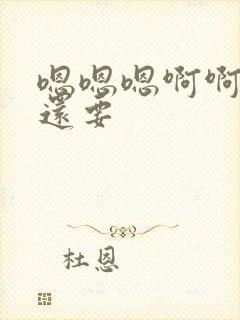 嗯嗯嗯啊啊
還要
杜恩